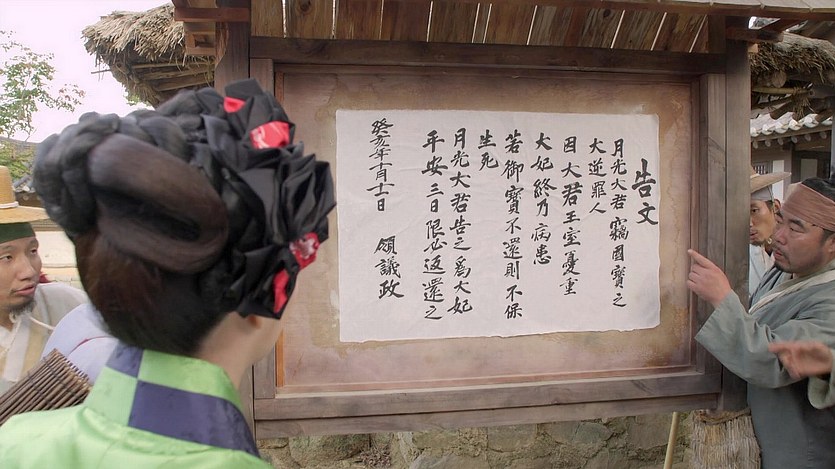 告文
月光大君竊國寶之
大逆罪人
因大君王室憂重
大妃終乃病患
若御寶不還則不保
生死
月光大君告之爲大妃
平安三日限必返還之
癸亥年十一月十二日
領議政